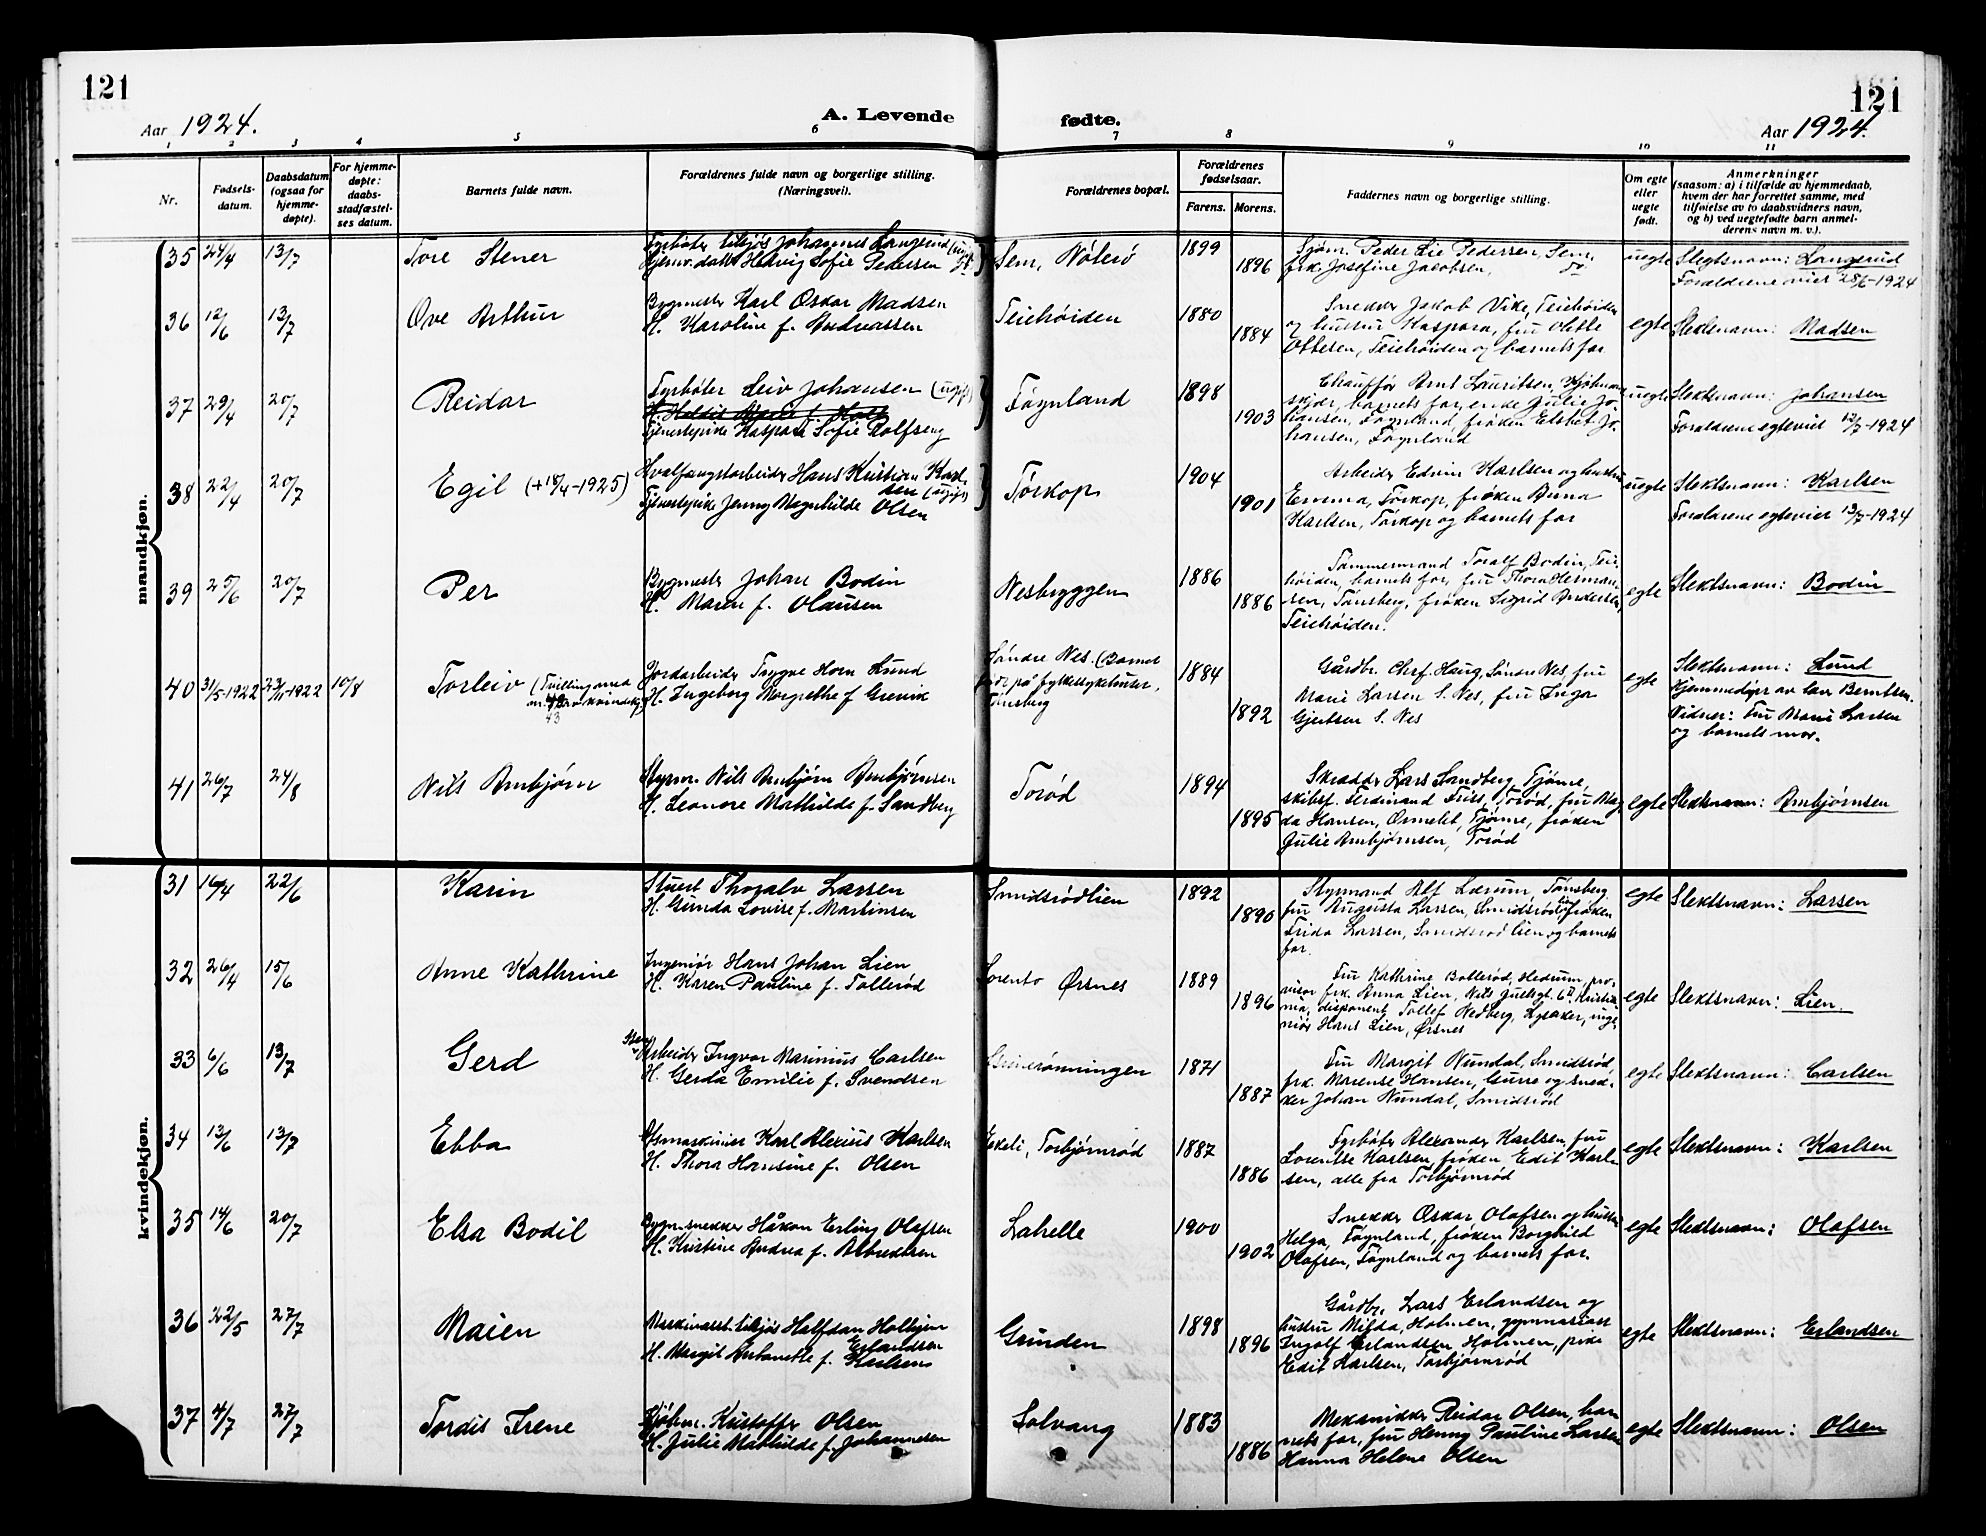 121
Aar 1924.
A. Levende
fødte.
121
Aar 1924.
1 2 3 4 5 6 7 8 9 10 11
Nr.
Fødsels-
datum.
Daabsdatum
(ogsaa for
hjemme-
døpte).
For hjemme-
døpte:
daabs-
stadfæstel-
ses datum.
Barnets fulde navn.
Forældrenes fulde navn og borgerlige stilling.
(Næringsvei).
Forældrenes bopæl.
Forældrenes
fødselsaar.
Farens. Morens.
Faddernes navn og borgerlige stilling.
Om egte
eller
uegte
født.
Anmerkninger
(saasom: a) i tilfælde av hjemmedaab,
hvem der har forrettet samme, med
tilføielse av to daabsvidners navn,
og b) ved uegtefødte barn anmel-
derens navn m. v.).
mandkjøn.
35 24/4 13/7
Tore Stener
Fyrbøter Johannes Langerud
Hedvig Sofie Pedersen
Sem, Nøterø
1899
1896
Sjøm. Peder Lie Pedersen, Sem,
frk. Josefine Jacobsen,
uegte
Slegtsnavn: Langerud
Forældrene viet 28/6-1924
36 12/6 13/7
Ove Arthur
Bygmester Karl Oskar Madsen
H. Karoline f. Andreassen
Teiehøiden
1880
1884
Snekker Jakob Vike, Teiehøiden
og hustru Kaspara, fru Olette
Ottesen, Teiehøiden og barnets far
egte
Slektsnavn: Madsen
37 29/4 20/7
Reidar
Fyrbøter Leiv Johansen (ugift)
Tjenestepike Kaspara Sofie Rolfseng
Føynland
1898
1903
Chauffør Arnt Lauritsen,
barnets far, enke Julie Jo-
hansen, Føynland, frøken Elsbet Jo-
hansen, Føynland
uegte
Slektsnavn: Johansen
Forældrene egteviet 12/7-1924
38 22/4 20/7
Egil (+18/4-1925)
Hvalfangstarbeider Hans Kristian Karl-
sen (ugift)
Tjenestepike Jenny Magnhilde Olsen
Torkop
1904
1901
Arbeider Edvin Karlsen og hustru
Emma, Torkop, frøken Berna
Karlsen, Torkop og barnets far
uegte
Slektsnavn: Karlsen
Forældrene egteviet 13/7-1924
39 25/6 20/7
Per
Bygmester Johan Bodin
H. Maren f. Olausen
Nesbryggen
1886
1886
Tømmermand Toralf Bodin, Teie-
høiden, barnets far, fru Thora Herman-
sen, Tønsberg, frøken Sigrid Andersen,
Teiehøiden.
egte
Slektsnavn: Bodin
40 31/5-1922 10/8
Torleiv (Tvilling med
43
Jordarbeider Trygve Horn Lund
H. Ingeborg Margrethe f. Grevik
Søndre Nes. (Barnet
født på fylkessykehuset,
Tønsberg
1884
1892
Gårdbr. Chrf. Haug, Søndre Nes, fru
Marie Larsen S. Nes, fru Inga
Gjertsen S. Nes
egte
Slektsnavn: Lund
Hjemmedøpt av Berntsen.
Vidner: Fru Marie Larsen
og barnets mor.
41 26/7 24/8
Nils Arnbjørn
Styrm. Nils Arnbjørn Arnbjørnsen
H. Leonore Mathilde f. Sandberg
Torød
1894
1895
Skrædder Lars Sandberg, Tjøme,
skibsf. Ferdinand Friis, Torød, fru Mag-
da Hansen, Ormelet, Tjøme, frøken
Julie Arnbjørnsen, Torød
egte
Slektsnavn: Arnbjørnsen
kvindekjøn.
31 16/4 22/6
Karin
Stuert Thoralv Larsen
H. Gunda Lovise f. Martinsen
Smidsrødlien
1892
1890
Styrmand Alf Lærum, Tønsberg
fru Augusta Larsen, Smidsrødlien, frøken
Frida Larsen, Smidsrødlien og barnets
far.
egte
Slektsnavn: Larsen
32 26/4 15/6
Anne Kathrine
Ingeniør Hans Johan Lien
H. Karen Pauline f. Bollerød
Sorento Ørsnes
1889
1896
Fru Kathrine Bollerød, Hedrum, pro-
visor frk. Anna Lien, Nils Juelsgt. 6 Kristia-
nia, disponent Tollef Nedberg, Lysaker, inge-
niør Hans Lien, Ørsnes
egte
Slektsnavn: Lien.
33 6/6 13/7
Gerd
Arbeider Ingvar Marinius Carlsen
H. Gerda Emilie f. Svendsen
1871
1887
Fru Margit Nundal, Smidsrød
frk. Marense Hansen, og sned-
ker Johan Nundal, Smidsrød
egte
Slektsnavn: Carlsen
34 13/6 13/7
Ebba
Karl Alexius Karlsen
H. Thora Hansine f. Olsen
Ekeli, Torbjørnrød
1887
1886
Fyrbøter Alexander Karlsen, fru
Lorentse Karlsen, frøken Edit Karl-
sen, alle fra Torbjørnrød
egte
Slektsnavn: Karlsen
35 14/6 20/7
Elsa Bodil
Bygn.snekker Håkon Erling Olafsen
H. Kristine Andrea f. Albretsen
Labelle
1900
1902
Snekker Oskar Olafsen og hustru
Helga, Føynland, frøken Borghild
Olafsen, Føynland og barnets far.
egte
Slektsnavn: Olafsen
36 22/5 27/7
Maien
Halfdan Holbjørn
Erlandsen
H. Margit Antonette f. Karlsen
Grunden
1898
1896
Gårdbr. Lars Erlandsen og
hustru Milda, Holmen, gymnasiast
Ingolf Erlandsen, Holmen, pike
Edit Karlsen, Torbjørnrød
egte
Slektsnavn: Erlandsen
37 4/7 27/7
Tordis Irene
Kjøbm. Kristoffer Olsen
H. Julie Mathilde f. Johannesen
Solvang
1883
1886
Mekaniker Reidar Olsen, bar-
nets far, fru Henny Pauline Larsen
Hanna Helene Olsen
egte
Slektsnavn: Olsen